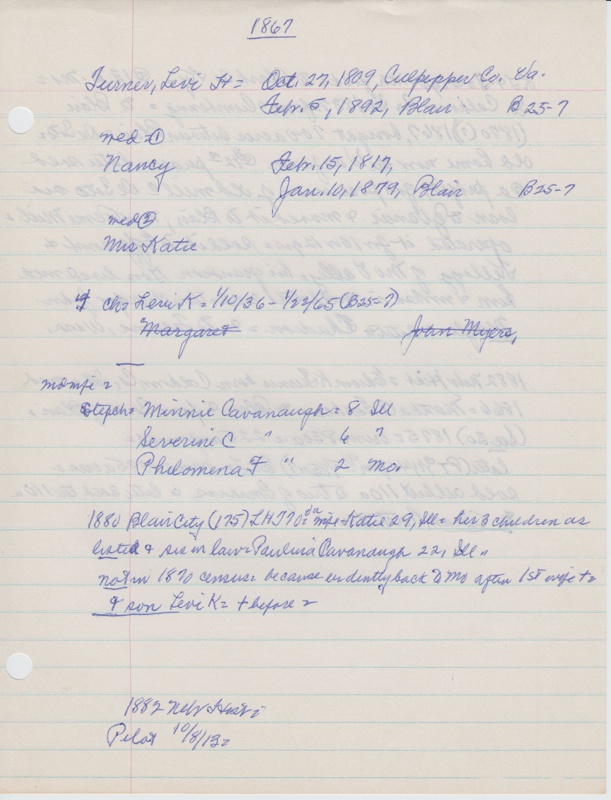 1867
Turner, Levi H = Oct. 27, 1809, Culpepper Co. Va.
Febr. 5, 1892, Blair B 25-7
med = ①
Nancy Febr. 15, 1817,
Jan. 10, 1879, Blair B25-7
med ②
Mrs Katie
ch = Levi K = 1/10/36 - 1/22/65 (B25-7)
Margaret John Myers,
Stepch = Minnie Cavanaugh = 8 Ill
Severine C " 6 "
Philomena F " 2 Mo.
1880 Blair City (175) LHT 70 = Katie 29, Ill = her 3 children as
listed & sis in law = Paulina Cavanaugh 22, Ill =
not in 1870 census = because evidently back to Mo after 1st wife +
& son Levi K = + before =
1882 Nebr Hist =
Pilot 10/8/13 =